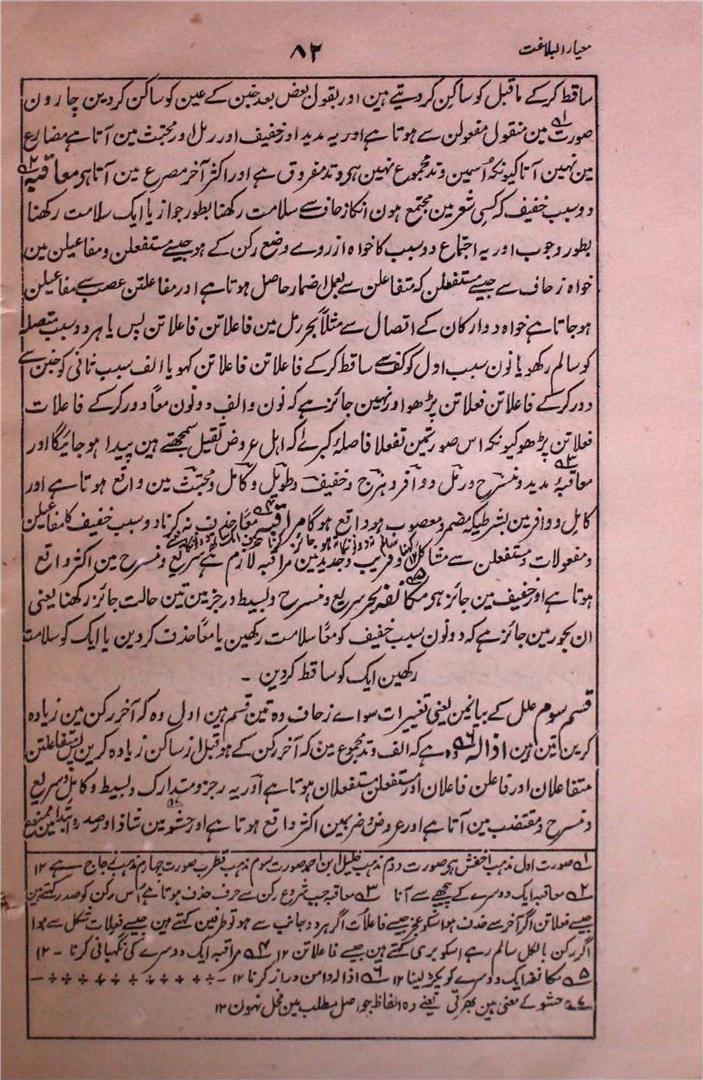 معیار البلاغت
۸۲
ساقط کرکے ماقبل کو ساکن کر دیتے ہین اور بقول بعض بعد خبن کے عین کو ساکن کر دین چارون
صورت مین منقول مفعولن سے ہوتا ہے اور یہ مدید اور خفیف اور رمل اور مجتث مین آتا ہے مضارع
مین نہین آتا کیونکہ اُسمین وتد مجموع نہین ہی وتد مفروق ہے اور اکثر آخر مصرع مین آتا ہی معاقبہ
دو سبب خفیف کہ کسی شعر مین مجتمع ہون انکا زحاف سے سلامت رکھنا بطور جواز یا ایک سلامت رکھنا
بطور وجوب اور یہ اجتماع دو سبب کا خواہ ازروے وضع رکن کے ہو جیسے مستفعلن و مفاعیلن مین
خواہ زحاف سے جیسے مستفعلن کہ متفاعلن سے بعمل اضمار حاصل ہوتا ہے اور مفاعلتن عصب سے مفاعیلن
ہو جاتا ہے خواہ دو ارکان کے اتصال سے مثلاً بحر رمل مین فاعلاتن فاعلاتن پس یا ہر دو سبب متصلہ
کو سالم رکھو یا نون سبب اول کو کف سے ساقط کرکے فاعلات فاعلاتن کہو یا الف سبب ثانی کو خبن سے
دور کرکے فاعلاتن فعلاتن پڑھو اور نہین جائز ہے کہ نون و الف دونون معاً دور کرکے فاعلات
فعلاتن پڑھو کیونکہ اس صورتمین فاصلۂ کبرے کہ اہل عروض ثقیل سمجھتے ہین پیدا ہو جائیگا اور
معاقبہ مدید و منسرح و رمل و وافر و ہزج و خفیف و طویل و کامل و مجتث مین واقع ہوتا ہے اور
کامل و وافر مین بشرطیکہ مضمر و معصوب ہو واقع ہوگا مراقبہ معاً حذف نہ کرنا دو سبب خفیف کا مفاعیلن
و مفعولات و مستفعلن سے مشاکل و قریب و جدید مین مراقبہ لازم ہے سریع و منسرح مین اکثر واقع
ہوتا ہے اور خفیف مین جائز ہی مکانفہ بحر سریع و منسرح و بسیط و رجز مین تین حالت جائز رکھنا یعنی
ان بحور مین جائز ہے کہ دونون سبب خفیف کو معاً سلامت رکھین یا معاً حذف کر دین یا ایک کو سلامت
رکھین ایک کو ساقط کر دین ۔
قسم سوم علل کے بیانمین یعنی تغییرات سواے زحاف وہ تین قسم ہین اول وہ کہ آخر رکن مین زیادہ
کرین تین ہین اذالہ وہ ہے کہ الف وتد مجموع مین کہ آخر رکن کے ہو قبل از ساکن زیادہ کرین پس متفاعلن
متفاعلان اور فاعلن فاعلان اور مستفعلن مستفعلان ہوتا ہے اور یہ رجز و متدارک و بسیط و کامل و سریع
و منسرح و مقتضب مین آتا ہے اور عروض و ضرب مین اکثر واقع ہوتا ہے اور حشو مین شاذ اور صدر و ابتدا مین ممتنع
۱ صورت اول مذہب اخفش ہی صورت دوم مذہب خلیل ابن احمد صورت سوم مذہب قطرب صورت چہارم مذہب زجاج ہے ۱۲
۲ معاقبہ ایک دوسرے کے پیچھے سے آنا ۳ معاقبہ جب شروع رکن سے حرف حذف ہوتا ہے اُس رکن کو صدر کہتے ہین
جیسے فعلاتن اگر آخر سے حذف ہو اسکو عجز جیسے فاعلات اگر ہر دو جانب سے ہو تو طرفین کہتے ہین جیسے فعلات شکل سے ہوا
اگر رکن بالکل سالم رہے اسکو بری کہتے ہین جیسے فاعلاتن ۱۲ ۴ مراقبہ ایک دوسرے کی نگہبانی کرنا - ۱۲
۵ مکانفہ ایک دوسرے کو پکڑ لینا ۱۲ ۶ اذالہ دامن دراز کرنا ۱۲
۷ حشو کے معنی ہین بھرتی یعنے وہ الفاظ جو اصل مطلب مین مخل نہون ۱۲